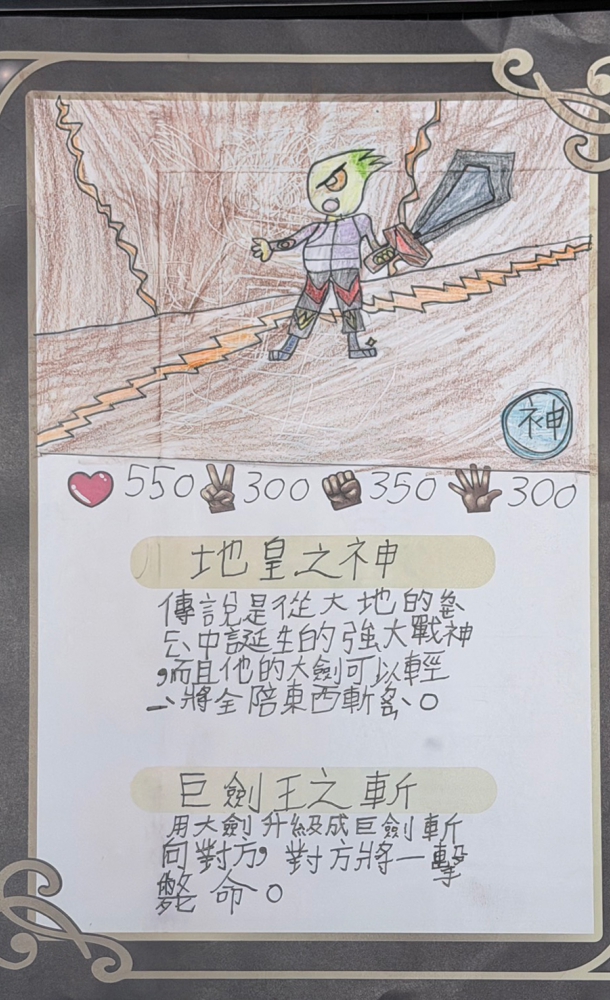 神
550 300 350 300
地皇之神
傳說是從大地的
中誕生的強大戰神
，而且他的大劍可以輕
將全陪東西斬
巨劍王之斬
用大劍升級成巨劍斬
向對方，對方將一擊
斃命。